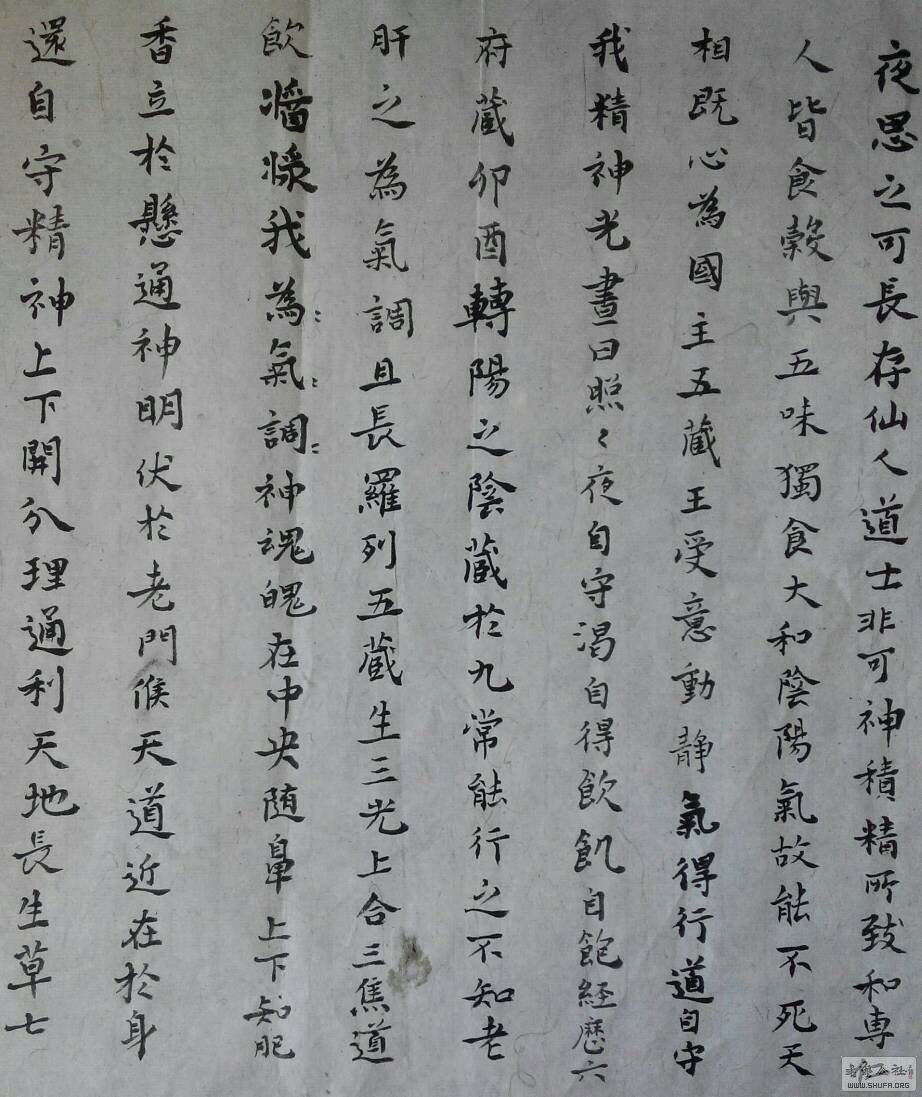 夜思之可長存仙人道士非可神積精所致和専
人皆食糓與五味獨食大和陰陽氣故能不死天
相既心為國主五藏王受意動静氣得行道自守
我精神光晝日照々夜自守渴自得飲飢自飽経歷六
府藏卯酉轉陽之陰藏於九常能行之不知老
肝之為氣調且長羅列五藏生三光上合三焦道
飲醬漿我為〻氣〻調〻神魂魄在中央随鼻上下知肥
香立於懸通神明伏於老門候天道近在於身
還自守精神上下開分理通利天地長生草七
WWW.SHUFA.ORG